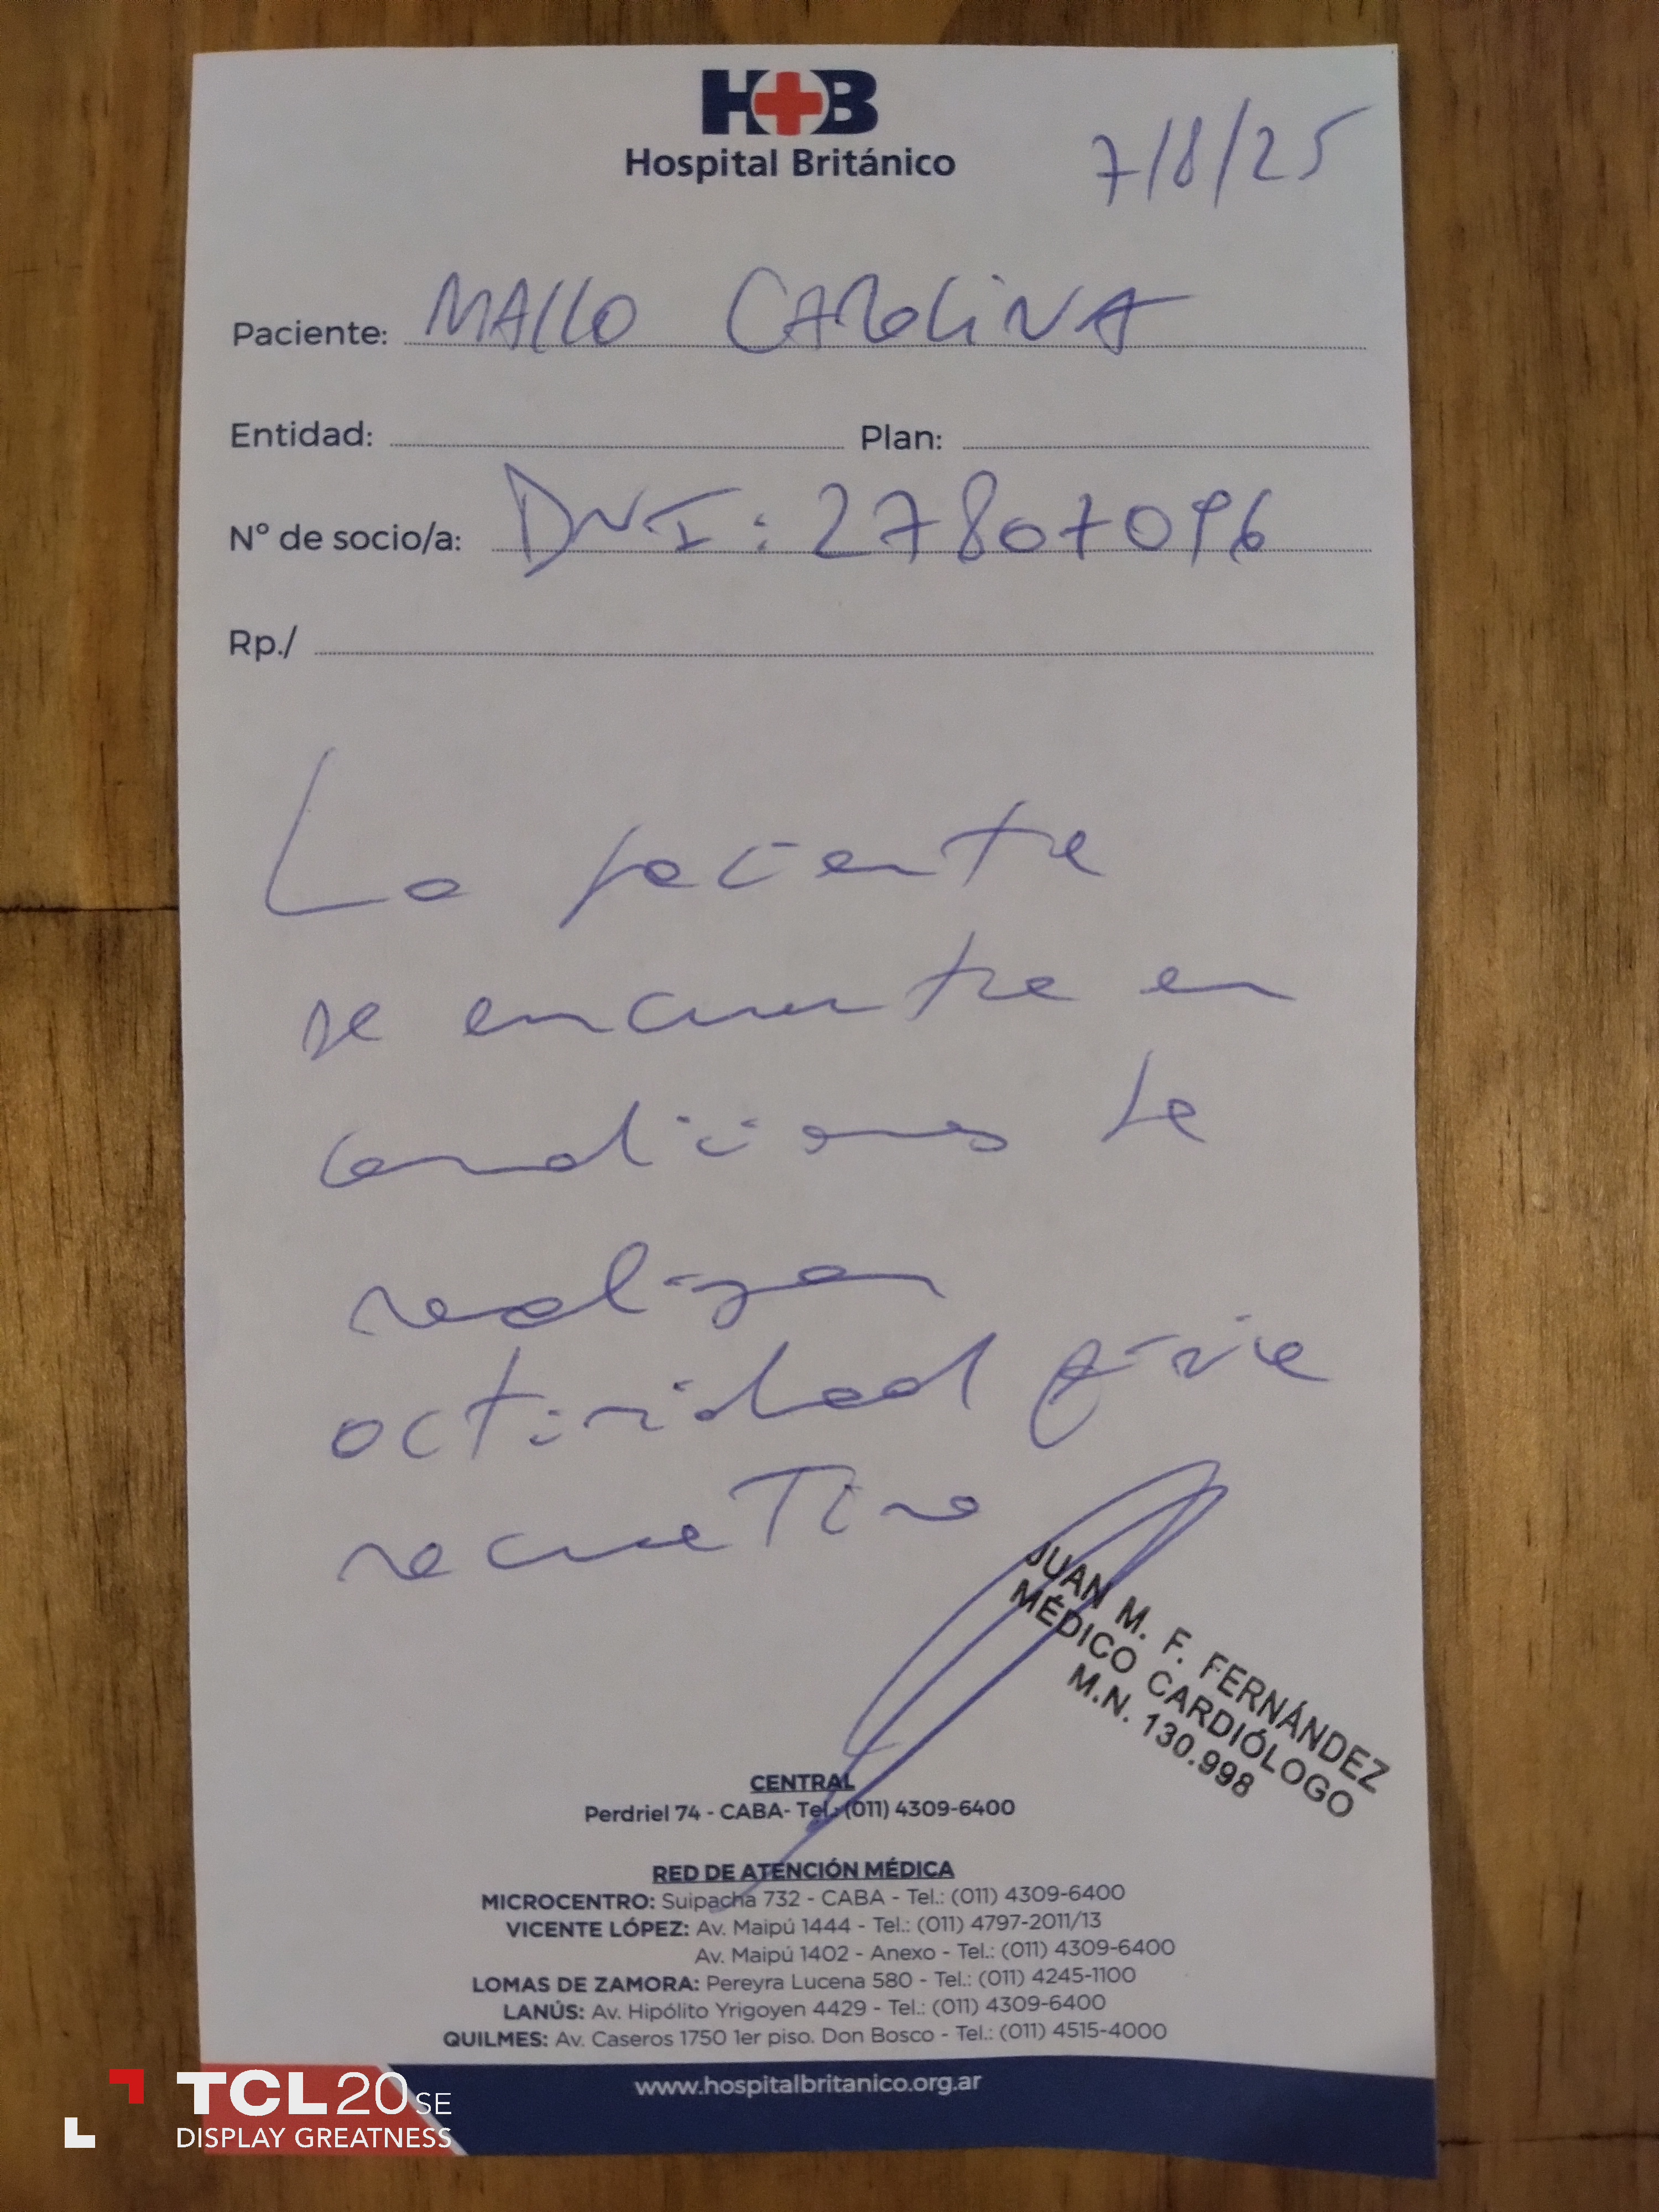 H+B
Hospital Británico
7/8/25
Paciente: MALLO CAROLINA
Entidad: Plan:
Nº de socio/a: DNI: 27807096
Rp./
La paciente
se encuentra en
condiciones de
realizar
actividad física
recreativa
JUAN M. F. FERNÁNDEZ
MÉDICO CARDIÓLOGO
M.N. 130.998
CENTRAL
Perdriel 74 - CABA- Tel.: (011) 4309-6400
RED DE ATENCIÓN MÉDICA
MICROCENTRO: Suipacha 732 - CABA - Tel.: (011) 4309-6400
VICENTE LÓPEZ: Av. Maipú 1444 - Tel.: (011) 4797-2011/13
Av. Maipú 1402 - Anexo - Tel.: (011) 4309-6400
LOMAS DE ZAMORA: Pereyra Lucena 580 - Tel.: (011) 4245-1100
LANÚS: Av. Hipólito Yrigoyen 4429 - Tel.: (011) 4309-6400
QUILMES: Av. Caseros 1750 1er piso. Don Bosco - Tel.: (011) 4515-4000
www.hospitalbritanico.org.ar
TCL 20 SE
DISPLAY GREATNESS